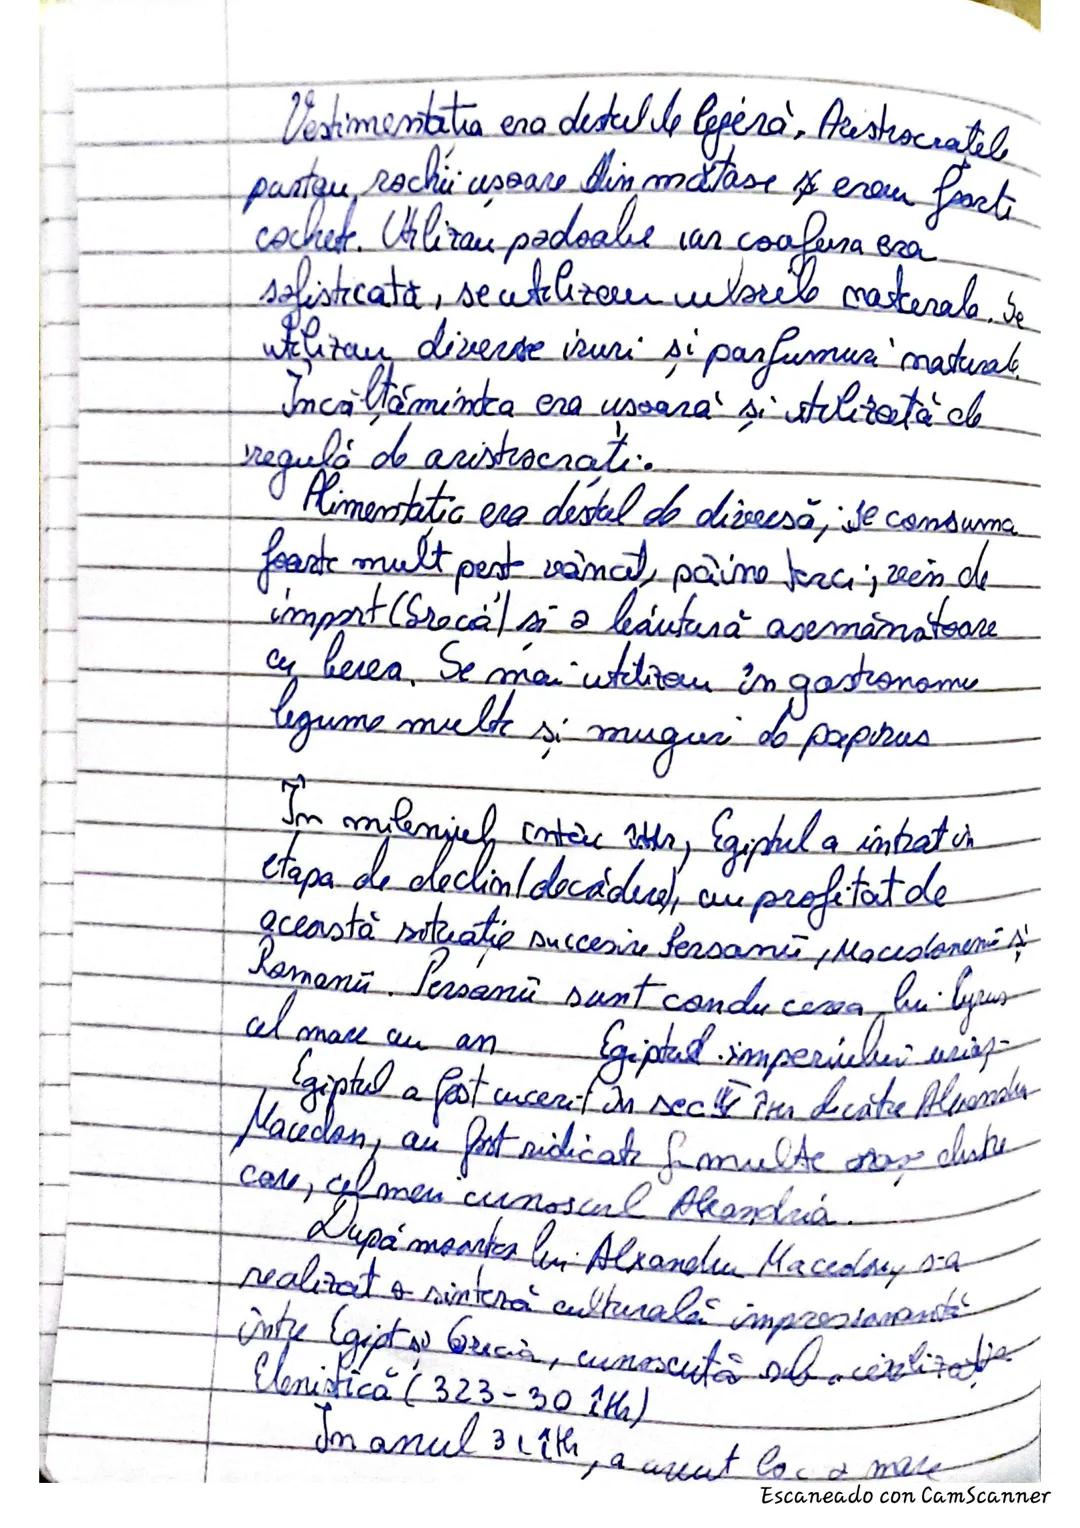 Vestimentația era destul de lejeră. Aristrocratele
purtau rochii ușoare din mătase și erau foarte
cochete. Utilizau podoabe iar coafura era
sofisticată, se utilizau uleurile naturale. Se
utilizau diverse iruri și parfumuri naturale.
Încălțămintea era ușoară și utilizată de
regulă de aristrocrați.
Alimentația era destul de diversă, se consuma
foarte mult pește vânat, pâine terci, vin de
import (Grecia) și o băutură asemănătoare
cu berea. Se mai utilizau în gastronomie
legume multe și muguri de papirus
În mileniul întâi îHr, Egiptul a intrat în
etapa de declin (decădere), au profitat de
această situație succesive Persanii, Macedonenii și
Romanii. Persanii sunt conducerea lui Cyrus
cel mare au an Egiptul imperiului
Egiptul a fost cucerit în sec IV îHr de către Alexandru
Macedon, au fost ridicate f. multe orașe dintre
care, cel mai cunoscut Alexandria.
După moartea lui Alexandru Macedon, s-a
realizat o sinteză culturală impresionantă
între Egipt și Grecia, cunoscută sub civilizația
Elenistică (323-30 îHr)
În anul 31 îHr, a avut loc o mare
Escaneado con CamScanner